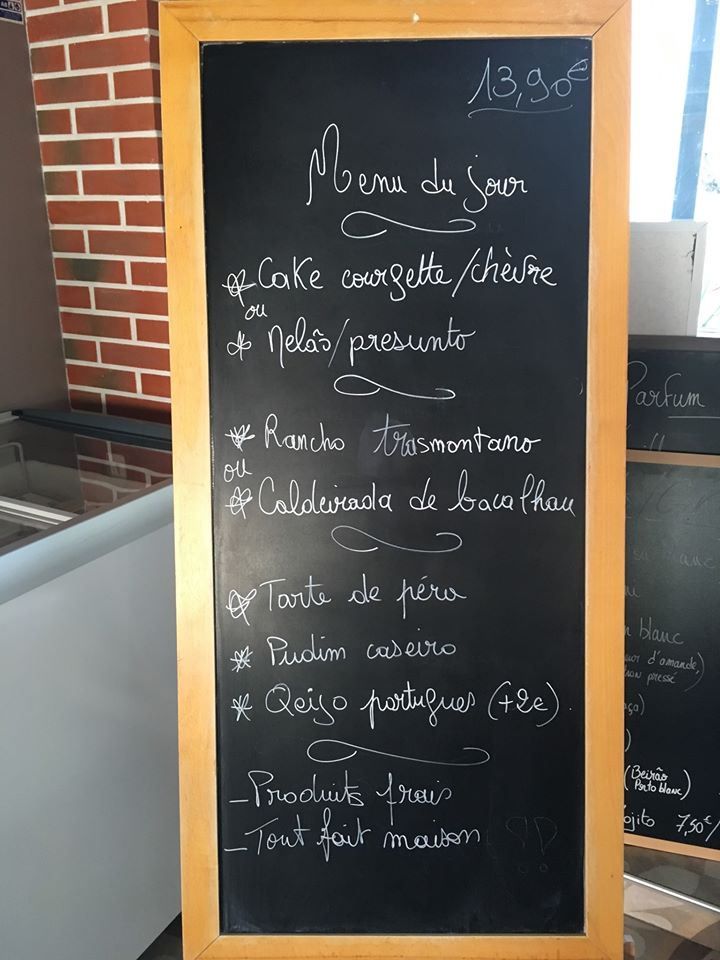 13,90€
Menu du jour
* Cake courgette/chèvre
ou
* Melâs/presunto
* Rancho trasmontano
ou
* Caldeirada de bacalhau
* Tarte de péra
* Pudim caseiro
* Qeijo portugues (+2e).
- Produits frais
- Tout fait maison
Parfum
blanc
d'amande,
pressé)
(Beirão
Porto blanc)
7,50€/